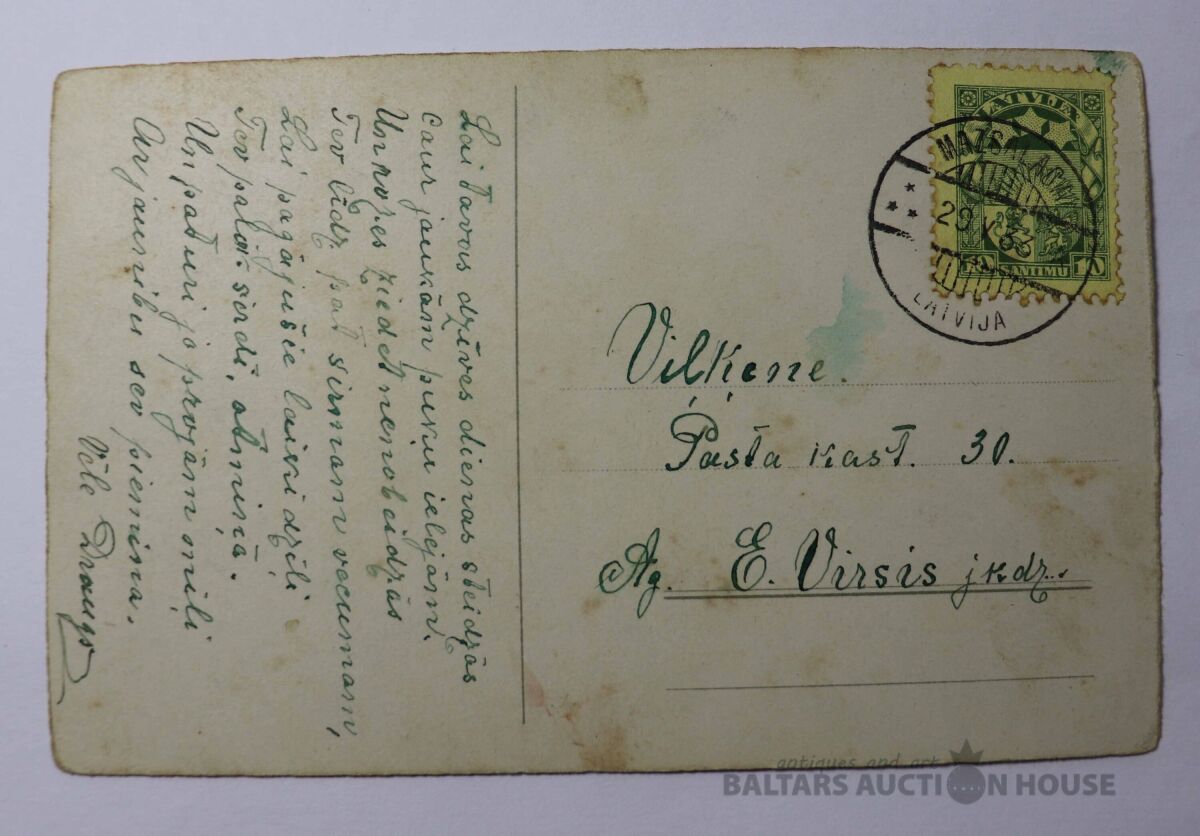 Lai Tavas dzīves dienas steidzās
Caur jaukām puķu ielejām.
Un rozes ziedēt nenobeidzās
Tev līdz pat sirmam vecumam,
Lai pagājušie laiki dziļi
Tev paliek sirdī, atmiņā.
Un paturi jo projām mīļi
Ar jaunību sev piemiņa.
Vēle Draugs
LATVIJA
10 SANTIMU 10
MAZSALACA
29 V 33
LATVIJA
Vilkene.
Pasta kast. 30.
Ag. E. Virsis jkdz.
antiques and art
BALTARS AUCTION HOUSE